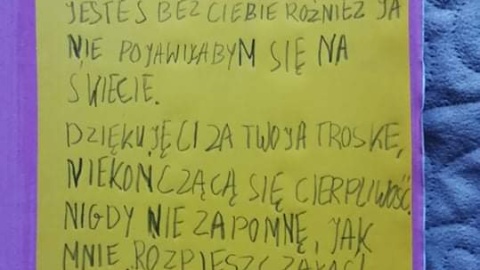 JESTEŚ BEZ CIEBIE RÓŻNIEŻ JA
NIE POJAWIŁABYM SIĘ NA
ŚWIECIE.
DZIĘKUJĘ CI ZA TWOJA TROSKĘ,
NIEKOŃCZĄCĄ SIĘ CIERPLIWOŚĆ.
NIGDY NIE ZAPOMNĘ, JAK
MNIE ROZPIESZCZAŁAŚ!